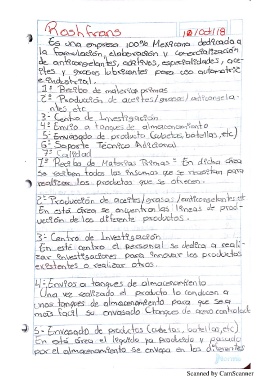 Roshfrans
12/Oct/18
Es una empresa 100% Mexicana dedicada a
la formulación, elaboración y comercialización
de anticongelantes, aditivos, especialidades, acei-
tes y grasas lubricantes para uso automotriz
e industrial.
1° Recibo de materias primas
2° Producción de aceites/grasas/anticongelan-
tes, etc
3° Centro de Investigación
4° Envío a tanques de almacenamiento
5° Envasado de producto (cubetas, botellas, etc)
6° Soporte Técnico Adicional
7° Calidad
1° Recibo de Materias Primas = En dicha área
se reciben todos los insumos que se necesitan para
realizar los productos que se ofrecen.
2° Producción de aceites/grasas/anticongelantes, etc
En esta área se encuentran las líneas de prod-
ución de los diferentes productos.
3- Centro de Investigación
En este centro el personal se dedica a reali-
zar investigaciones para innovar los productos
existentes o realizar otros.
4- Envíos a tanques de almacenamiento
Una vez realizado el producto lo conducen a
unos tanques de almacenamiento para que sea
más fácil su envasado
5- Envasado de producto (cubetas, botellas, etc)
En esta área el líquido ya producido y pasado
por el almacenamiento se envasa en los diferentes
Scanned by CamScanner